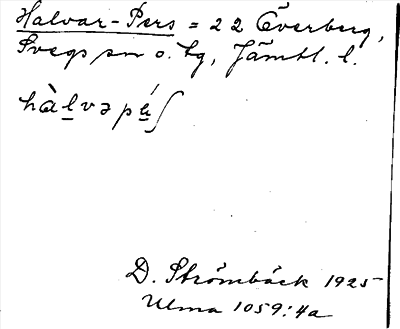 Halvar-Pers = 22 Överberg,
Svegs sn o. tg, Jämtl. l.
hàlvəpáʃ
D. Strömbäck 1925
Ulma 1059:4a